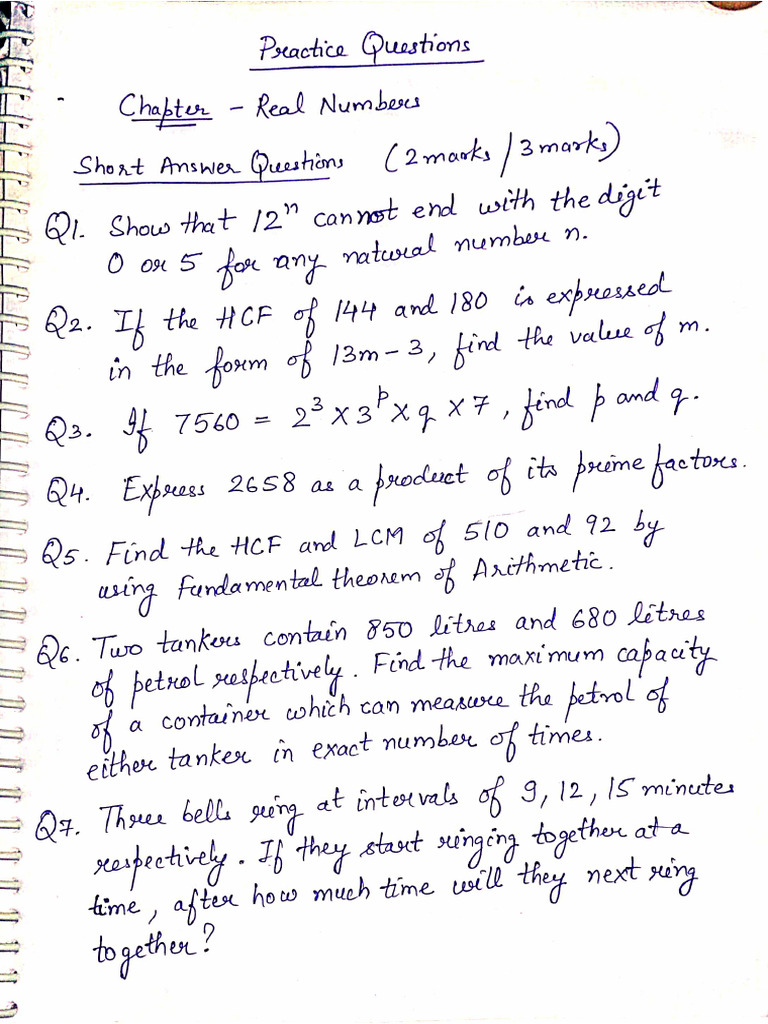 Practice Questions
Chapter - Real Numbers
Short Answer Questions (2 marks / 3 marks)
Q1. Show that 12ⁿ cannot end with the digit
0 or 5 for any natural number n.
Q2. If the HCF of 144 and 180 is expressed
in the form of 13m-3, find the value of m.
Q3. If 7560 = 2³ × 3ᵖ × q × 7, find p and q.
Q4. Express 2658 as a product of its prime factors.
Q5. Find the HCF and LCM of 510 and 92 by
using fundamental theorem of Arithmetic.
Q6. Two tankers contain 850 litres and 680 litres
of petrol respectively. Find the maximum capacity
of a container which can measure the petrol of
either tanker in exact number of times.
Q7. Three bells ring at intervals of 9, 12, 15 minutes
respectively. If they start ringing together at a
time, after how much time will they next ring
together?